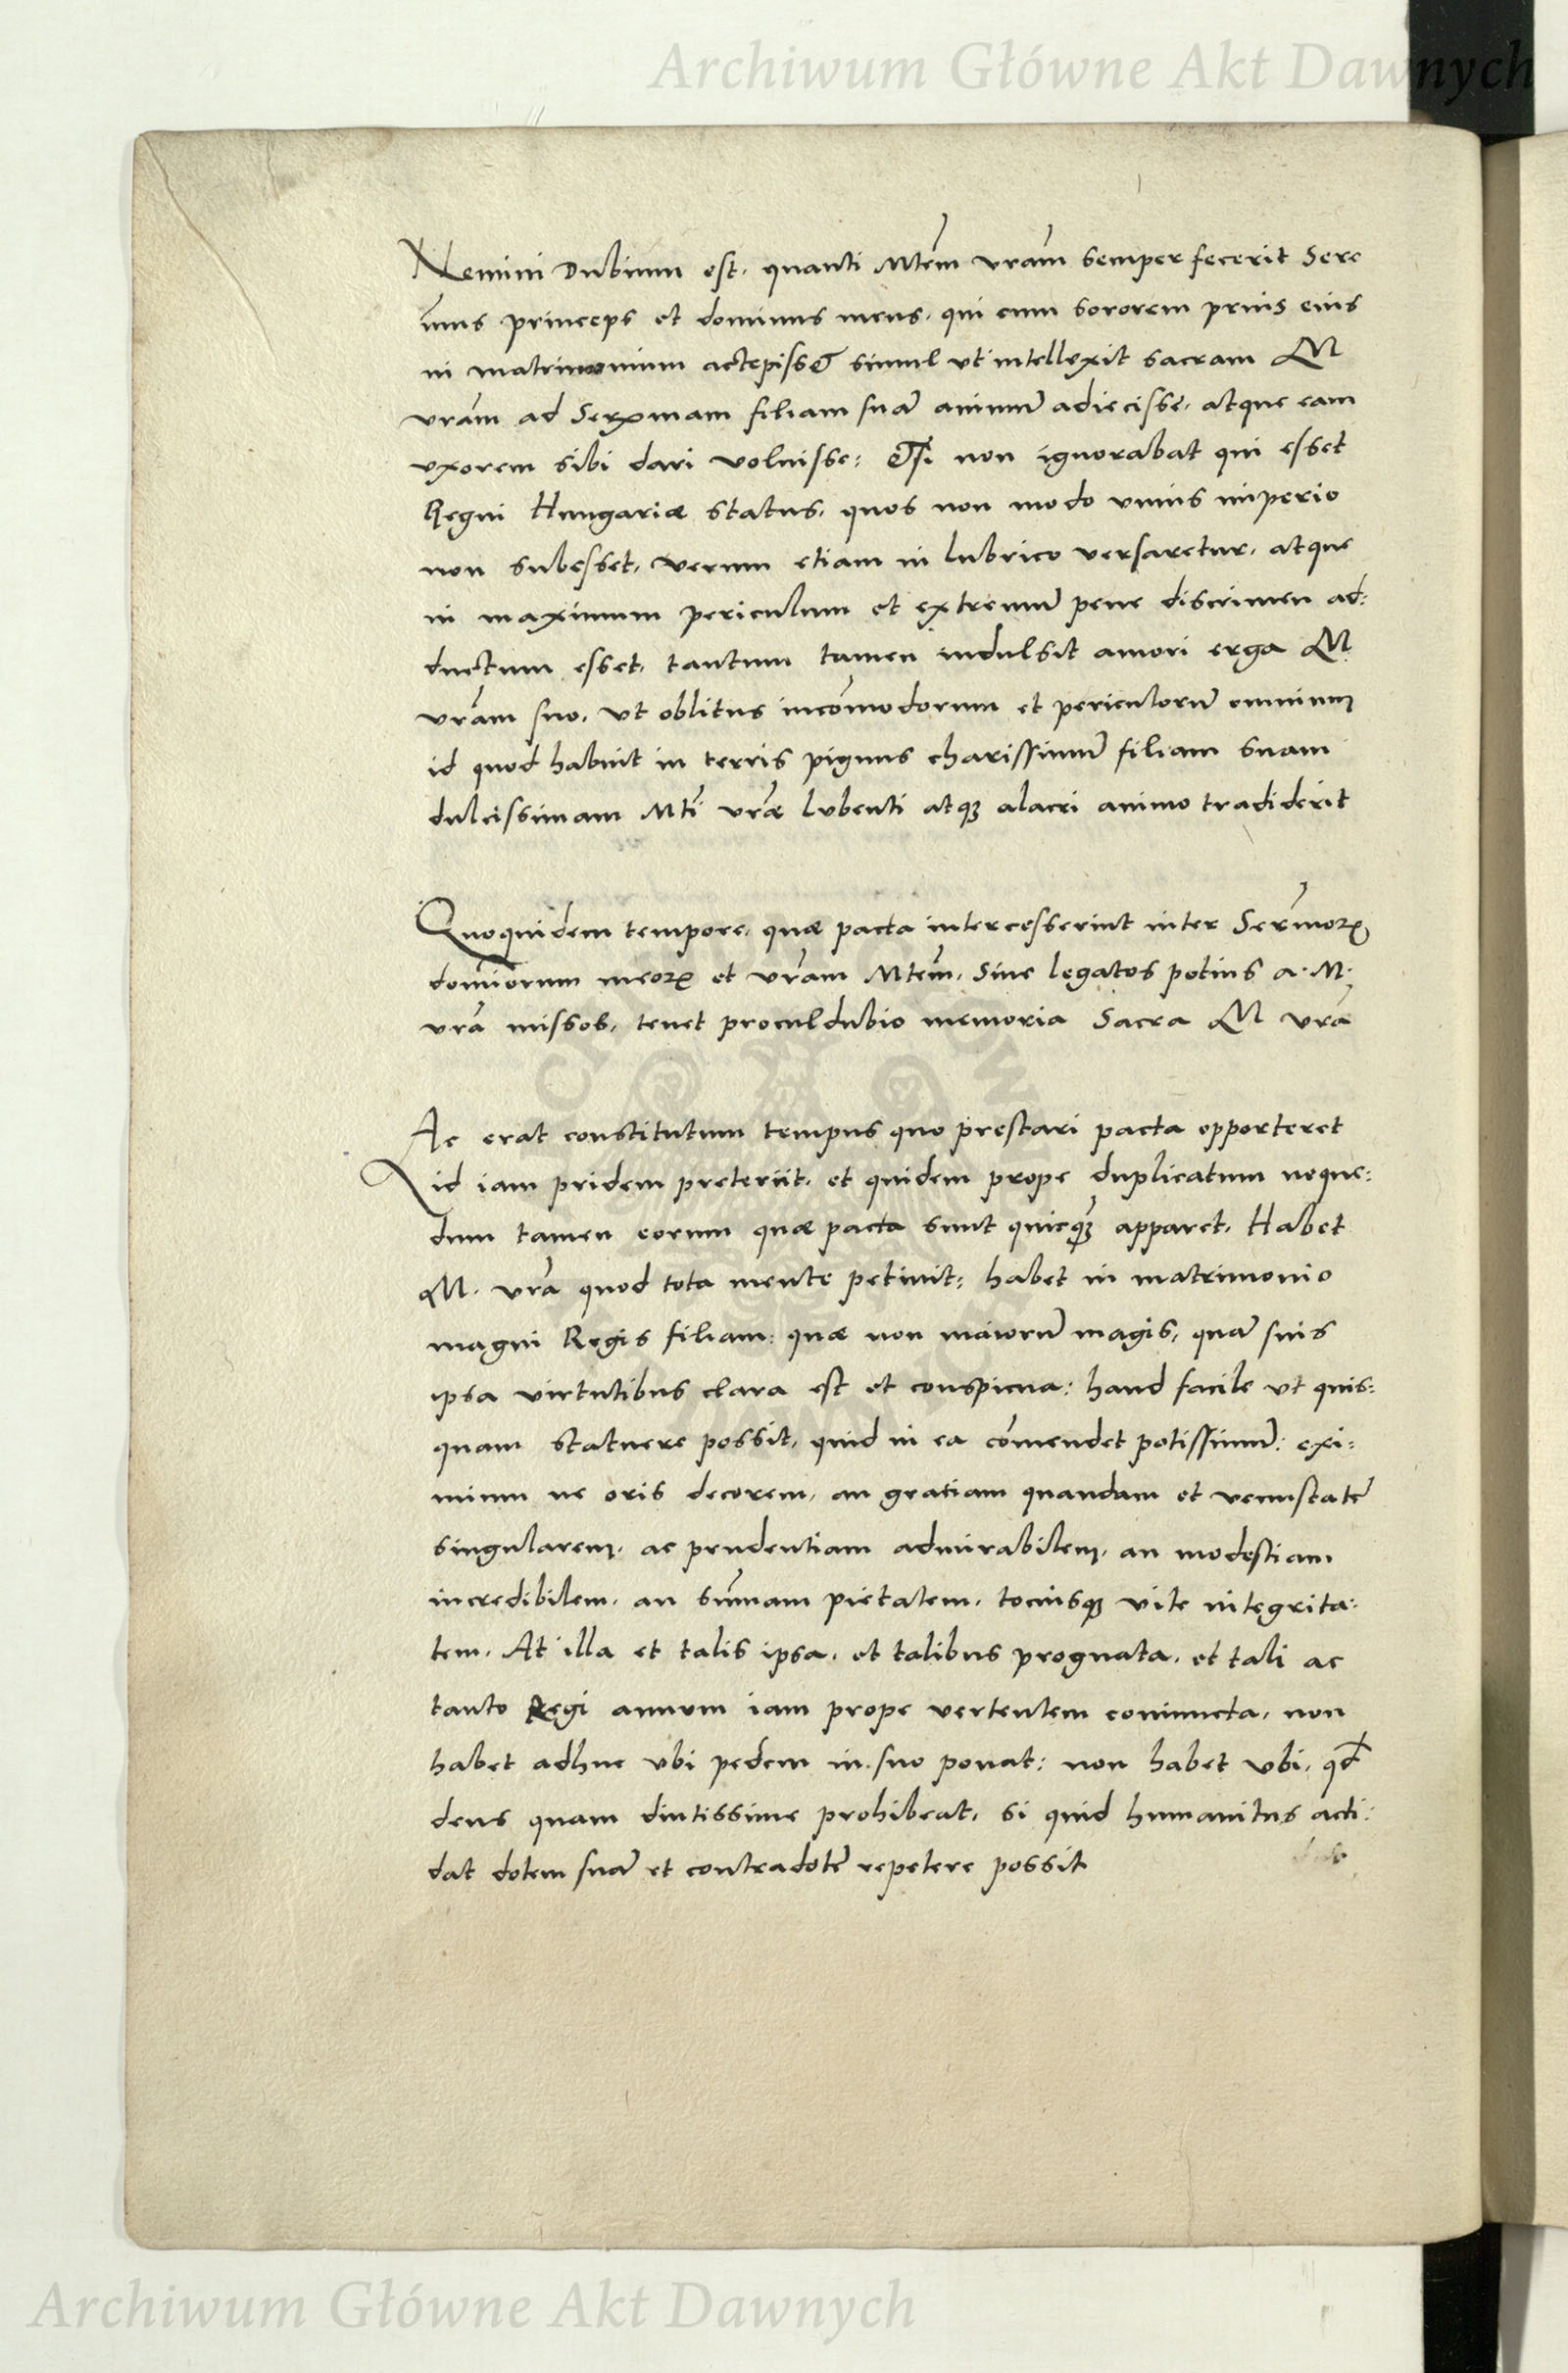 Archiwum Główne Akt Dawnych
Nemini Dubium est, quanti Mtẽm vrãm semper fecerit Sere
ũmus princeps et dominus meus, qui cum sororem prius eius
in matrimonium accepisset simul ut intellexit sacram M
vrãm ad Serx̃mam filiam suã animũ adiecisse, atque eam
uxorem sibi dari voluisse: Etsi non ignorabat qui esset
Regni Hungariæ status, quos non modo unius imperio
non subesset, verum etiam in lubrico versaretur, atque
in maximum periculum et extremũ pene discrimen ad:
ductum esset, tantum tamen indulsit amori erga M
vrãm suo, ut oblitus incõmodorum et periculorũ omnium
id quod habuit in terris pignus charissimũ filiam suam
dulcissimam Mti vræ lubenti atqȝ alacri animo tradiderit
Quoquidem tempore, quæ pacta intercesserint inter Serm̃orꝝ
domĩorum meorꝝ et vrãm Mtẽm, Sive legatos potius a. M.
vrã missos, tenet proculdubio memoria Sacra M vrã
Ac erat constitutum tempus quo prestari pacta opporteret
id iam pridem preteriit, et quidem prope duplicatum neque:
dum tamen eorum quæ pacta sunt quicqȝ̃ apparet, Habet
M. vrã quod tota mente petivit: habet in matrimonio
magni Regis filiam: quæ non maiorũ magis, quã suis
ipsa virtutibus clara est et conspicua: haud facile ut quis:
quam statuere possit, quid in ea cõmendet potissimũ: exi:
mium ne oris decorem, an gratiam quandam et venustatẽ
singularem, ac prudentiam admirabilem, an modestiam
incredibilem, an sum̃am pietatem, tociusqȝ vite integrita:
tem. At illa et talis ipsa, et talibus prognata, et tali ac
tanto Regi annum iam prope vertentem coniuncta, non
habet adhuc ubi pedem in suo ponat: non habet ubi, qđ
deus quam diutissime prohibeat, si quid humanitus acci:
dat dotem suã et contradotẽ repetere possit
Archiwum Główne Akt Dawnych